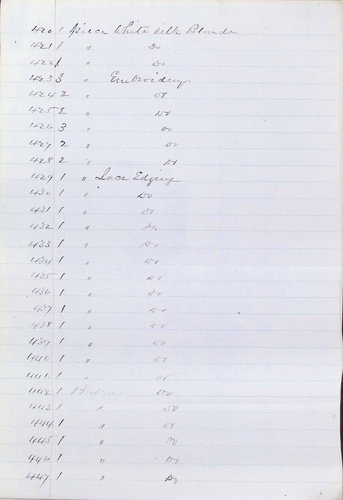 420 1 piece White silk Blonde
421 1 " Do
422 1 " Do
423 3 " Embroidery
424 2 " Do
425 2 " Do
426 3 " Do
427 2 " Do
428 2 " Do
429 1 " Lace Edging
430 1 " Do
431 1 " Do
432 1 " Do
433 1 " Do
434 1 " Do
435 1 " Do
436 1 " Do
437 1 " Do
438 1 " Do
439 1 " Do
440 1 " Do
441 1 " Do
442 1 Do
443 1 " Do
444 1 " Do
445 1 " Do
446 1 " Do
447 1 " Do